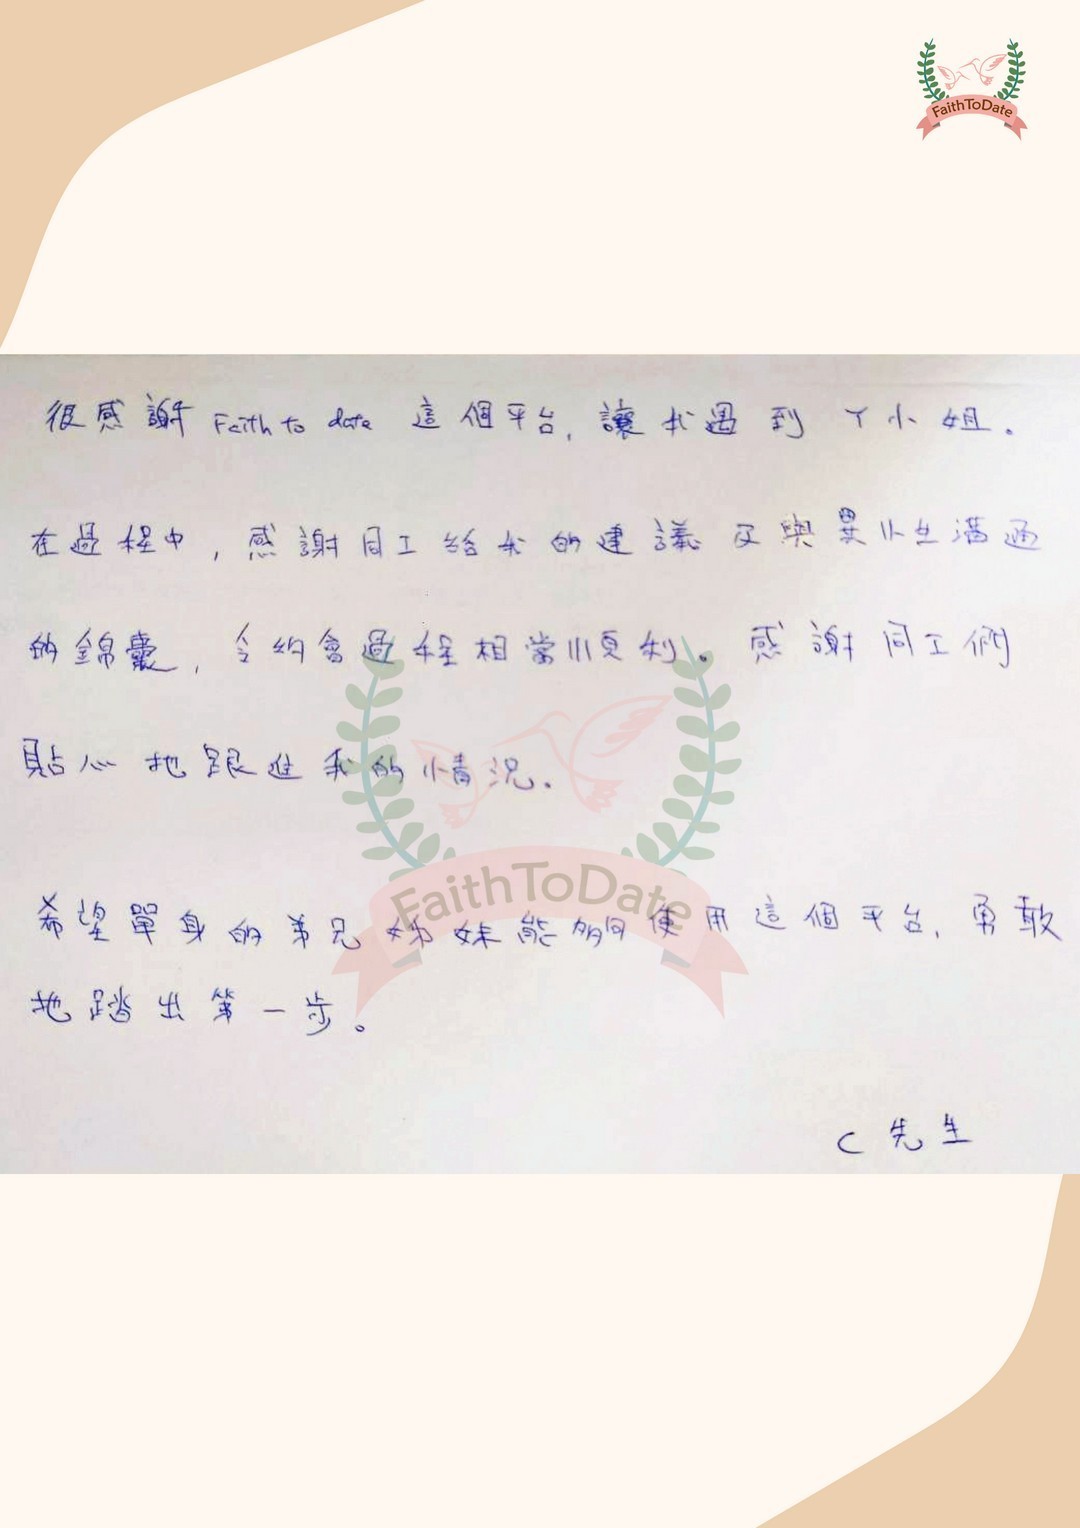 FaithToDate
很感謝 Faith to date 這個平台,讓我遇到 Y小姐。
在過程中,感謝同工給我的建議及與異性溝通
的錦囊,令約會過程相當順利。感謝同工們
貼心地跟進我的情況。
FaithToDate
希望單身的弟兄姊妹能夠使用這個平台,勇敢
地踏出第一步。
C 先生